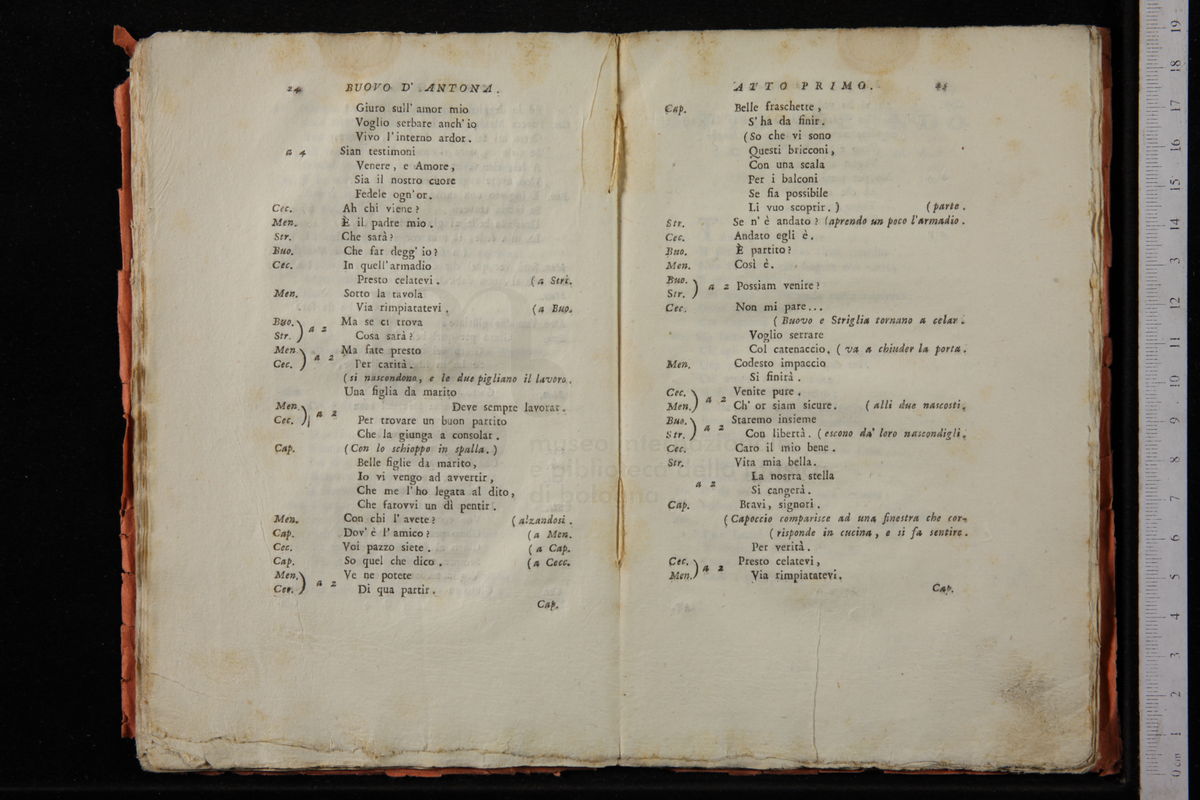 24 BUOVO D' ANTONA.
Giuro sull' amor mio
Voglio serbare anch' io
Vivo l'interno ardor.
a 4 Sian testimoni
Venere, e Amore,
Sia il nostro cuore
Fedele ogn' or.
Cec. Ah chi viene?
Men. È il padre mio.
Str. Che sarà?
Buo. Che far degg' io?
Cec. In quell' armadio
Presto celatevi. (a Stri.
Men. Sotto la tavola
Via rimpiatatevi. (a Buo.
Buo. Str. ) a 2 Ma se ci trova
Cosa sarà?
Men. Cec. ) a 2 Ma fate presto
Per carità.
(si nascondono, e le due pigliano il lavoro.
Una figlia da marito
Men. Cec. ) a 2 Deve sempre lavorar.
Per trovare un buon partito
Che la giunga a consolar.
Cap. (Con lo schioppo in spalla.)
Belle figlie da marito,
Io vi vengo ad avvertir,
Che me l'ho legata al dito,
Che farovvi un dì pentir.
Men. Con chi l' avete? (alzandosi.
Cap. Dov' è l' amico? (a Men.
Cec. Voi pazzo siete. (a Cap.
Cap. So quel che dico. (a Cecc.
Men. Cer. ) a 2 Ve ne potete
Di qua partir.
Cap.
ATTO PRIMO. 25
Cap. Belle fraschette,
S' ha da finir.
(So che vi sono
Questi bricconi,
Con una scala
Per i balconi
Se fia possibile
Li vuo scoprir.) (parte.
Str. Se n' è andato? (aprendo un poco l'armadio.
Cec. Andato egli è.
Buo. È partito?
Men. Così è.
Buo. Str. ) a 2 Possiam venire?
Cec. Non mi pare...
(Buovo e Striglia tornano a celar.
Voglio serrare
Col catenaccio. (va a chiuder la porta.
Men. Codesto impaccio
Si finirà.
Cec. Men. ) a 2 Venite pure.
Ch' or siam sicure. (alli due nascosti.
Buo. Str. ) a 2 Staremo insieme
Con libertà. (escono da' loro nascondigli.
Cec. Caro il mio bene.
Str. Vita mia bella.
a 2 La nostra stella
Si cangerà.
Cap. Bravi, signori.
(Capoccio comparisce ad una finestra che cor-
(risponde in cucina, e si fa sentire.
Per verità.
Cec. Men. ) a 2 Presto celatevi,
Via rimpiatatevi.
Cap.